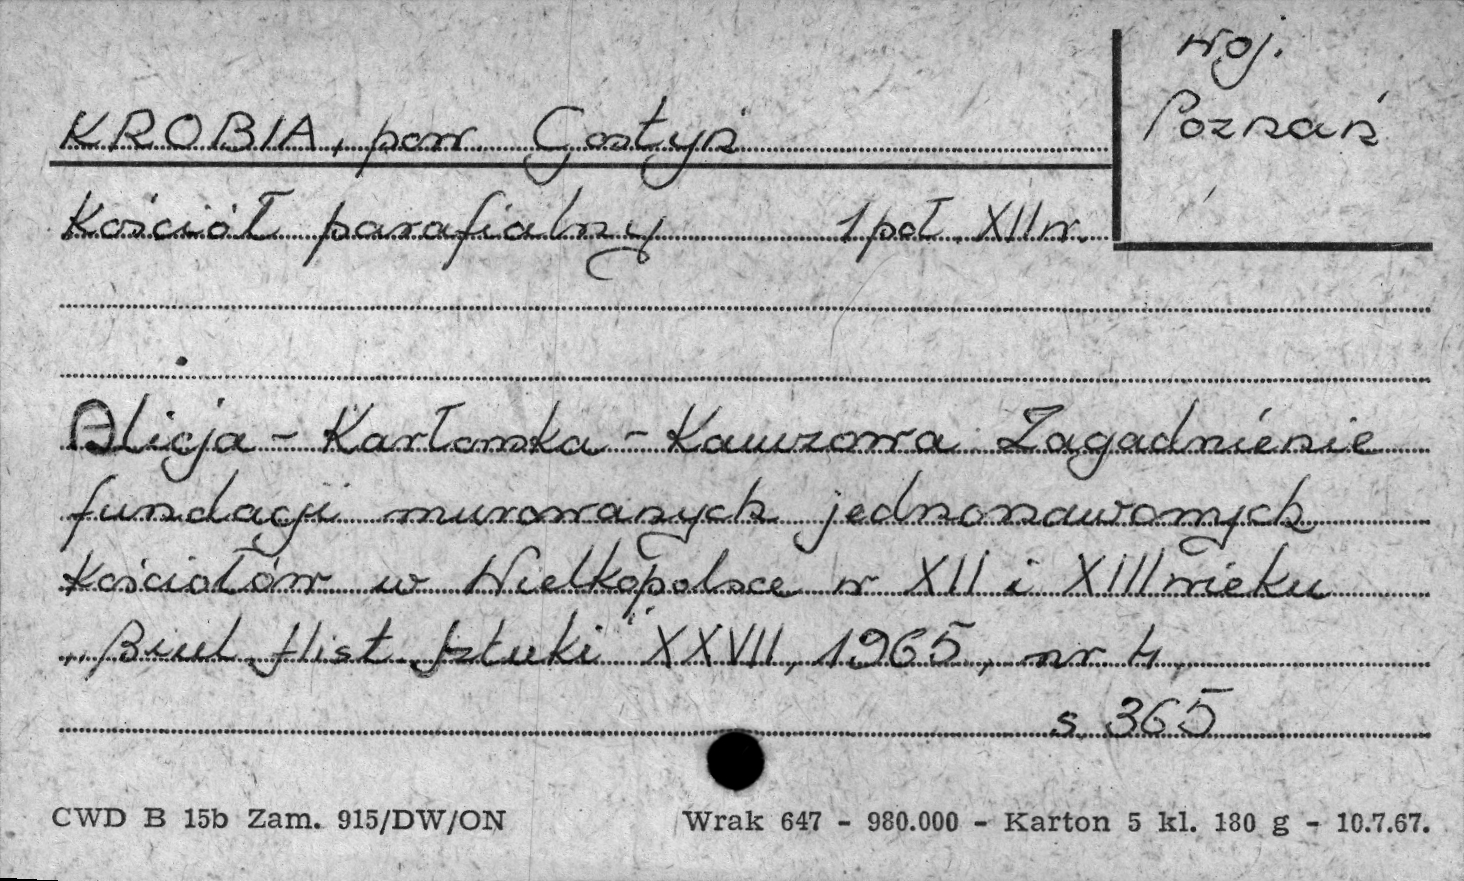 woj.
Poznań
KROBIA, pow. Gostyń
Kościół parafialny 1 poł. XII w.
Alicja - Karłowska - Kamzowa Zagadnienie
fundacji murowanych jednonawowych
kościołów w Wielkopolsce w XII i XIII wieku
„Biul. Hist. Sztuki" XXVII, 1965, nr 4,
s. 365
CWD B 15b Zam. 915/DW/ON Wrak 647 - 980.000 - Karton 5 kl. 180 g - 10.7.67.